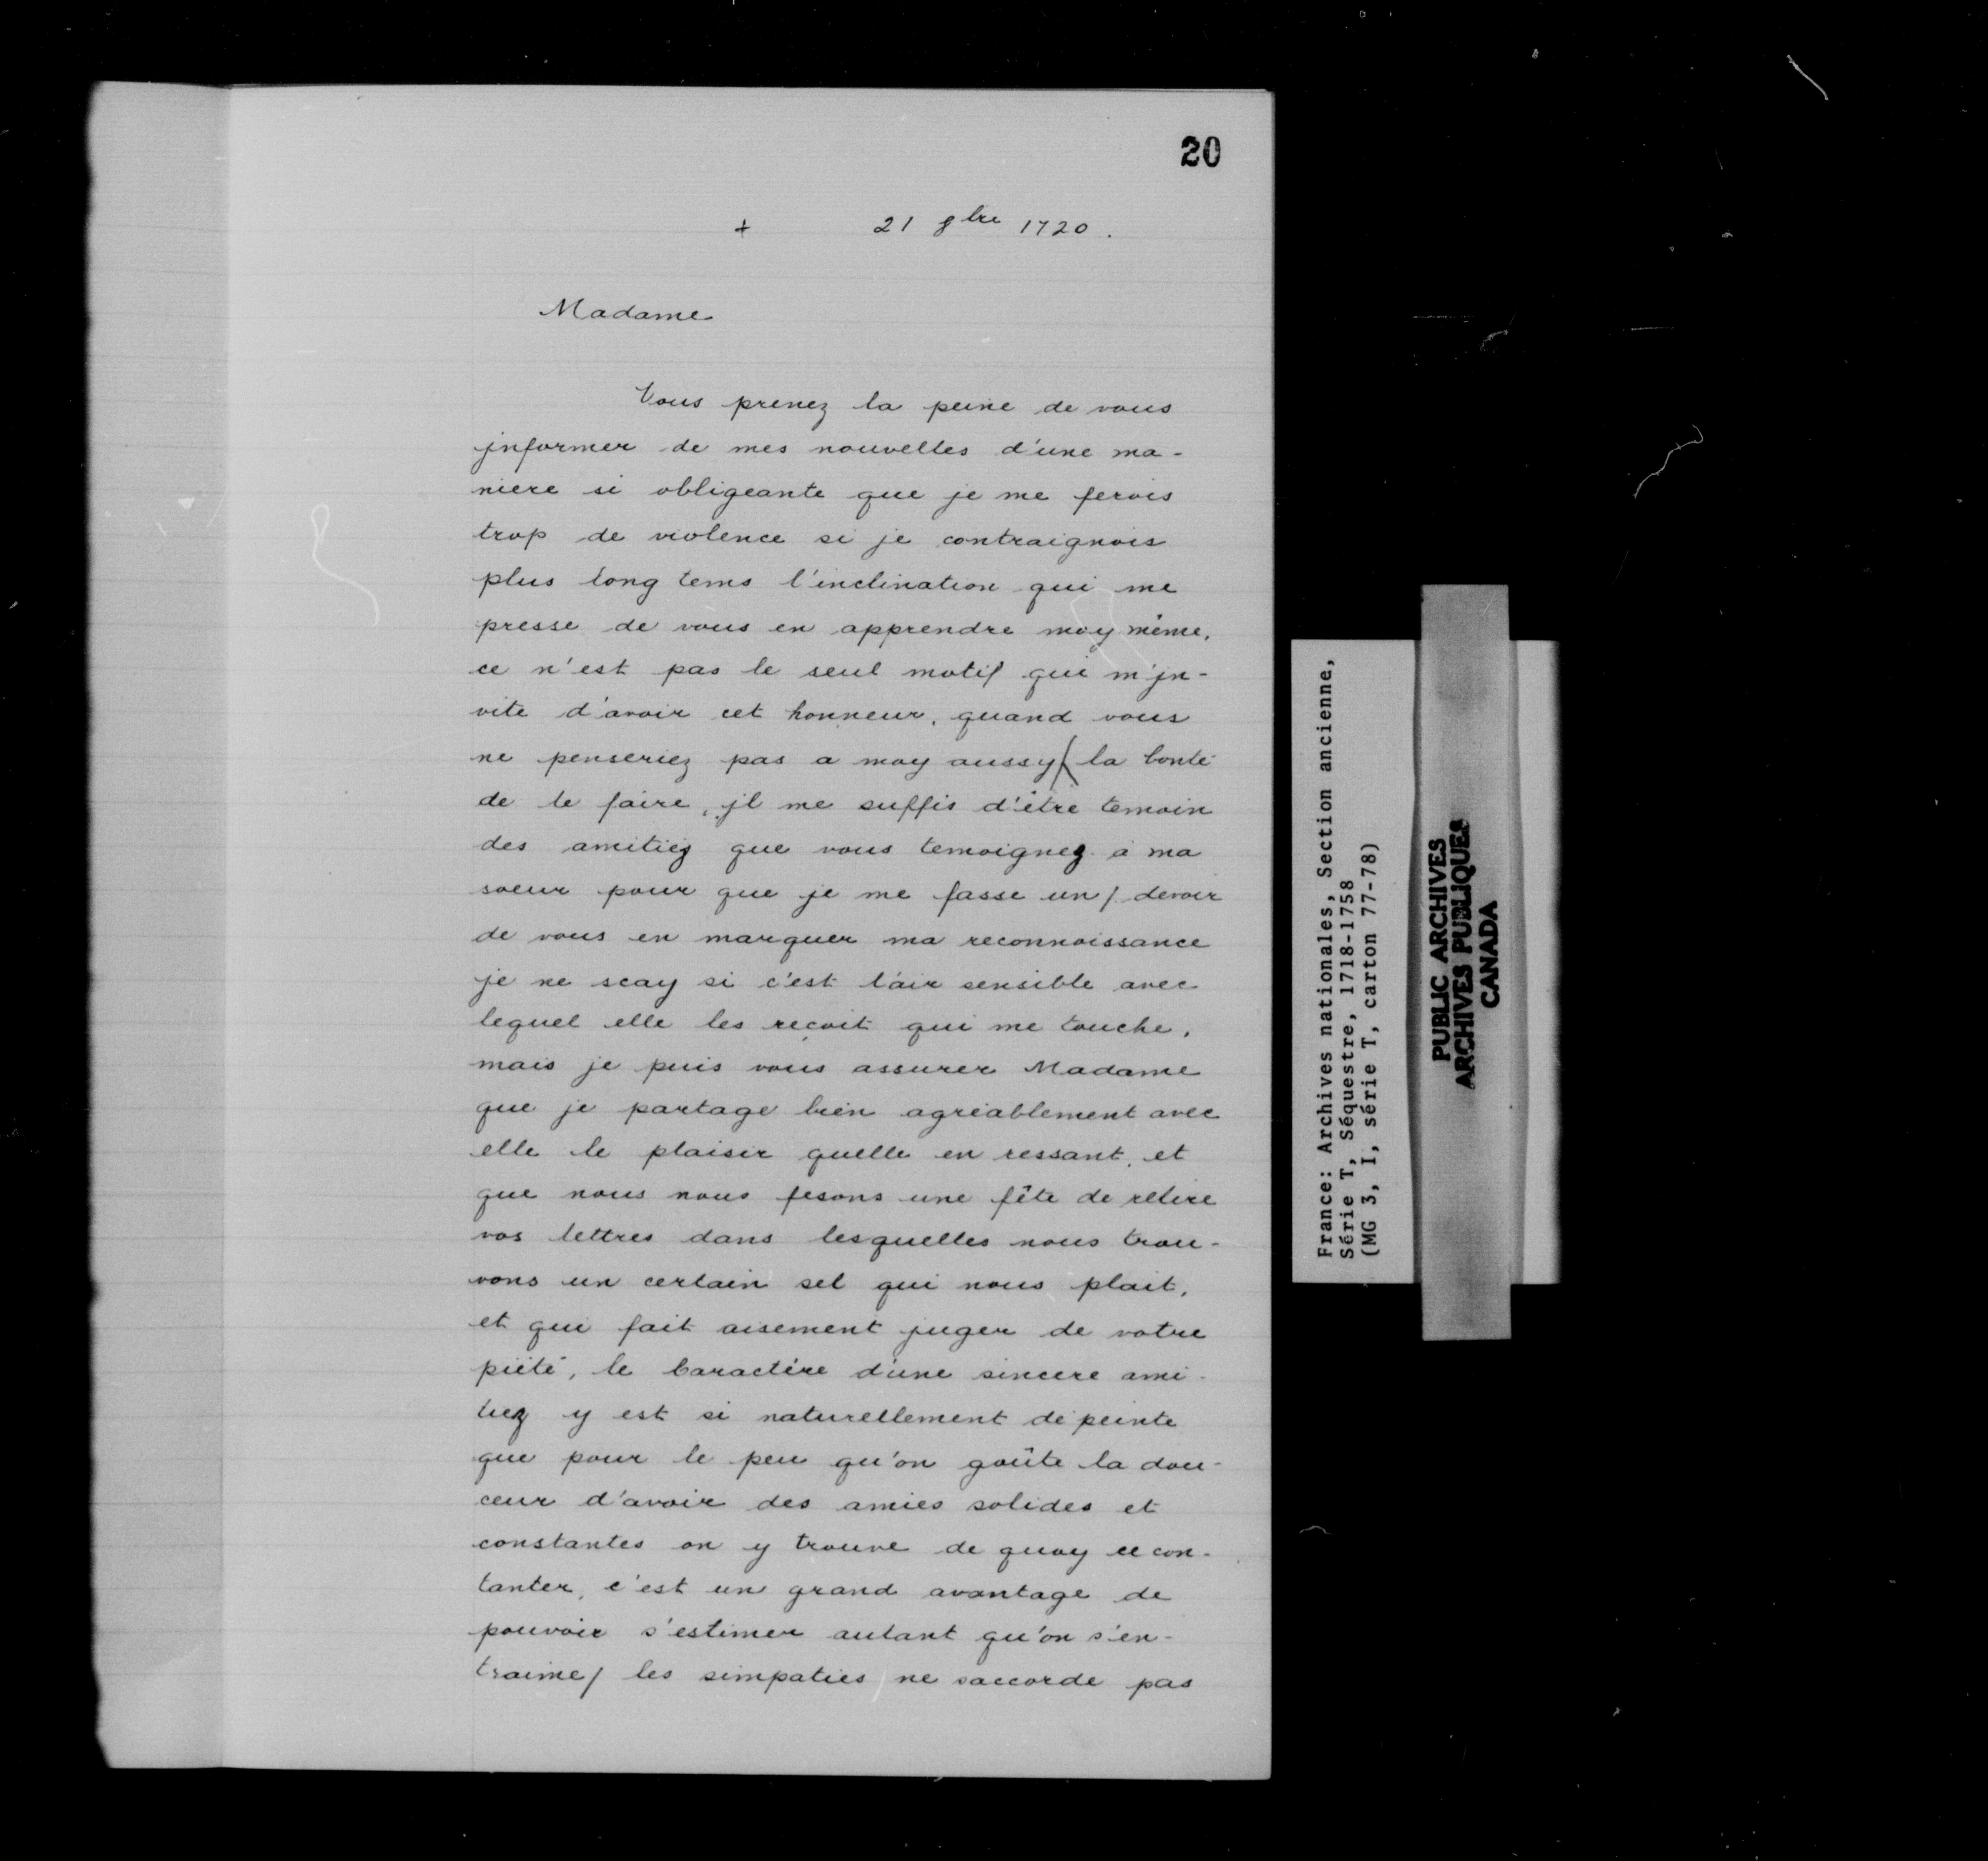 20
+ 21 8bre 1720.
Madame
Vous prenez la peine de vous
jnformer de mes nouvelles d'une ma-
niere si obligeante que je me ferois
trop de violence si je contraignois
plus long tems l'inclination qui me
presse de vous en apprendre moy même,
ce n'est pas le seul motif qui m'jn-
vite d'avoir cet honneur, quand vous
ne penseriez pas a moy aussy ( la bonté
de le faire, jl me suffis d'être temoin
des amitiez que vous temoignez à ma
soeur pour que je me fasse un / devoir
de vous en marquer ma reconnoissance
je ne scay si c'est l'air sensible avec
lequel elle les reçoit qui me touche,
mais je puis vous assurer Madame
que je partage bien agréablement avec
elle le plaisir quelle en ressant, et
que nous nous fesons une fête de relire
vos lettres dans lesquelles nous trou-
vons un certain sel qui nous plait,
et qui fait aisement juger de votre
piété, le Caractére d'une sincere ami-
tiez y est si naturellement dépeinte
que pour le peu qu'on goûte la dou-
ceur d'avoir des amies solides et
constantes on y trouve de quoy ce con-
tanter, c'est un grand avantage de
pouvoir s'estimer autant qu'on s'en-
traime / les simpaties / ne saccorde pas
France: Archives nationales, Section ancienne,
Série T, Séquestre, 1718-1758
(MG 3, I, série T, carton 77-78)
PUBLIC ARCHIVES
ARCHIVES PUBLIQUES
CANADA